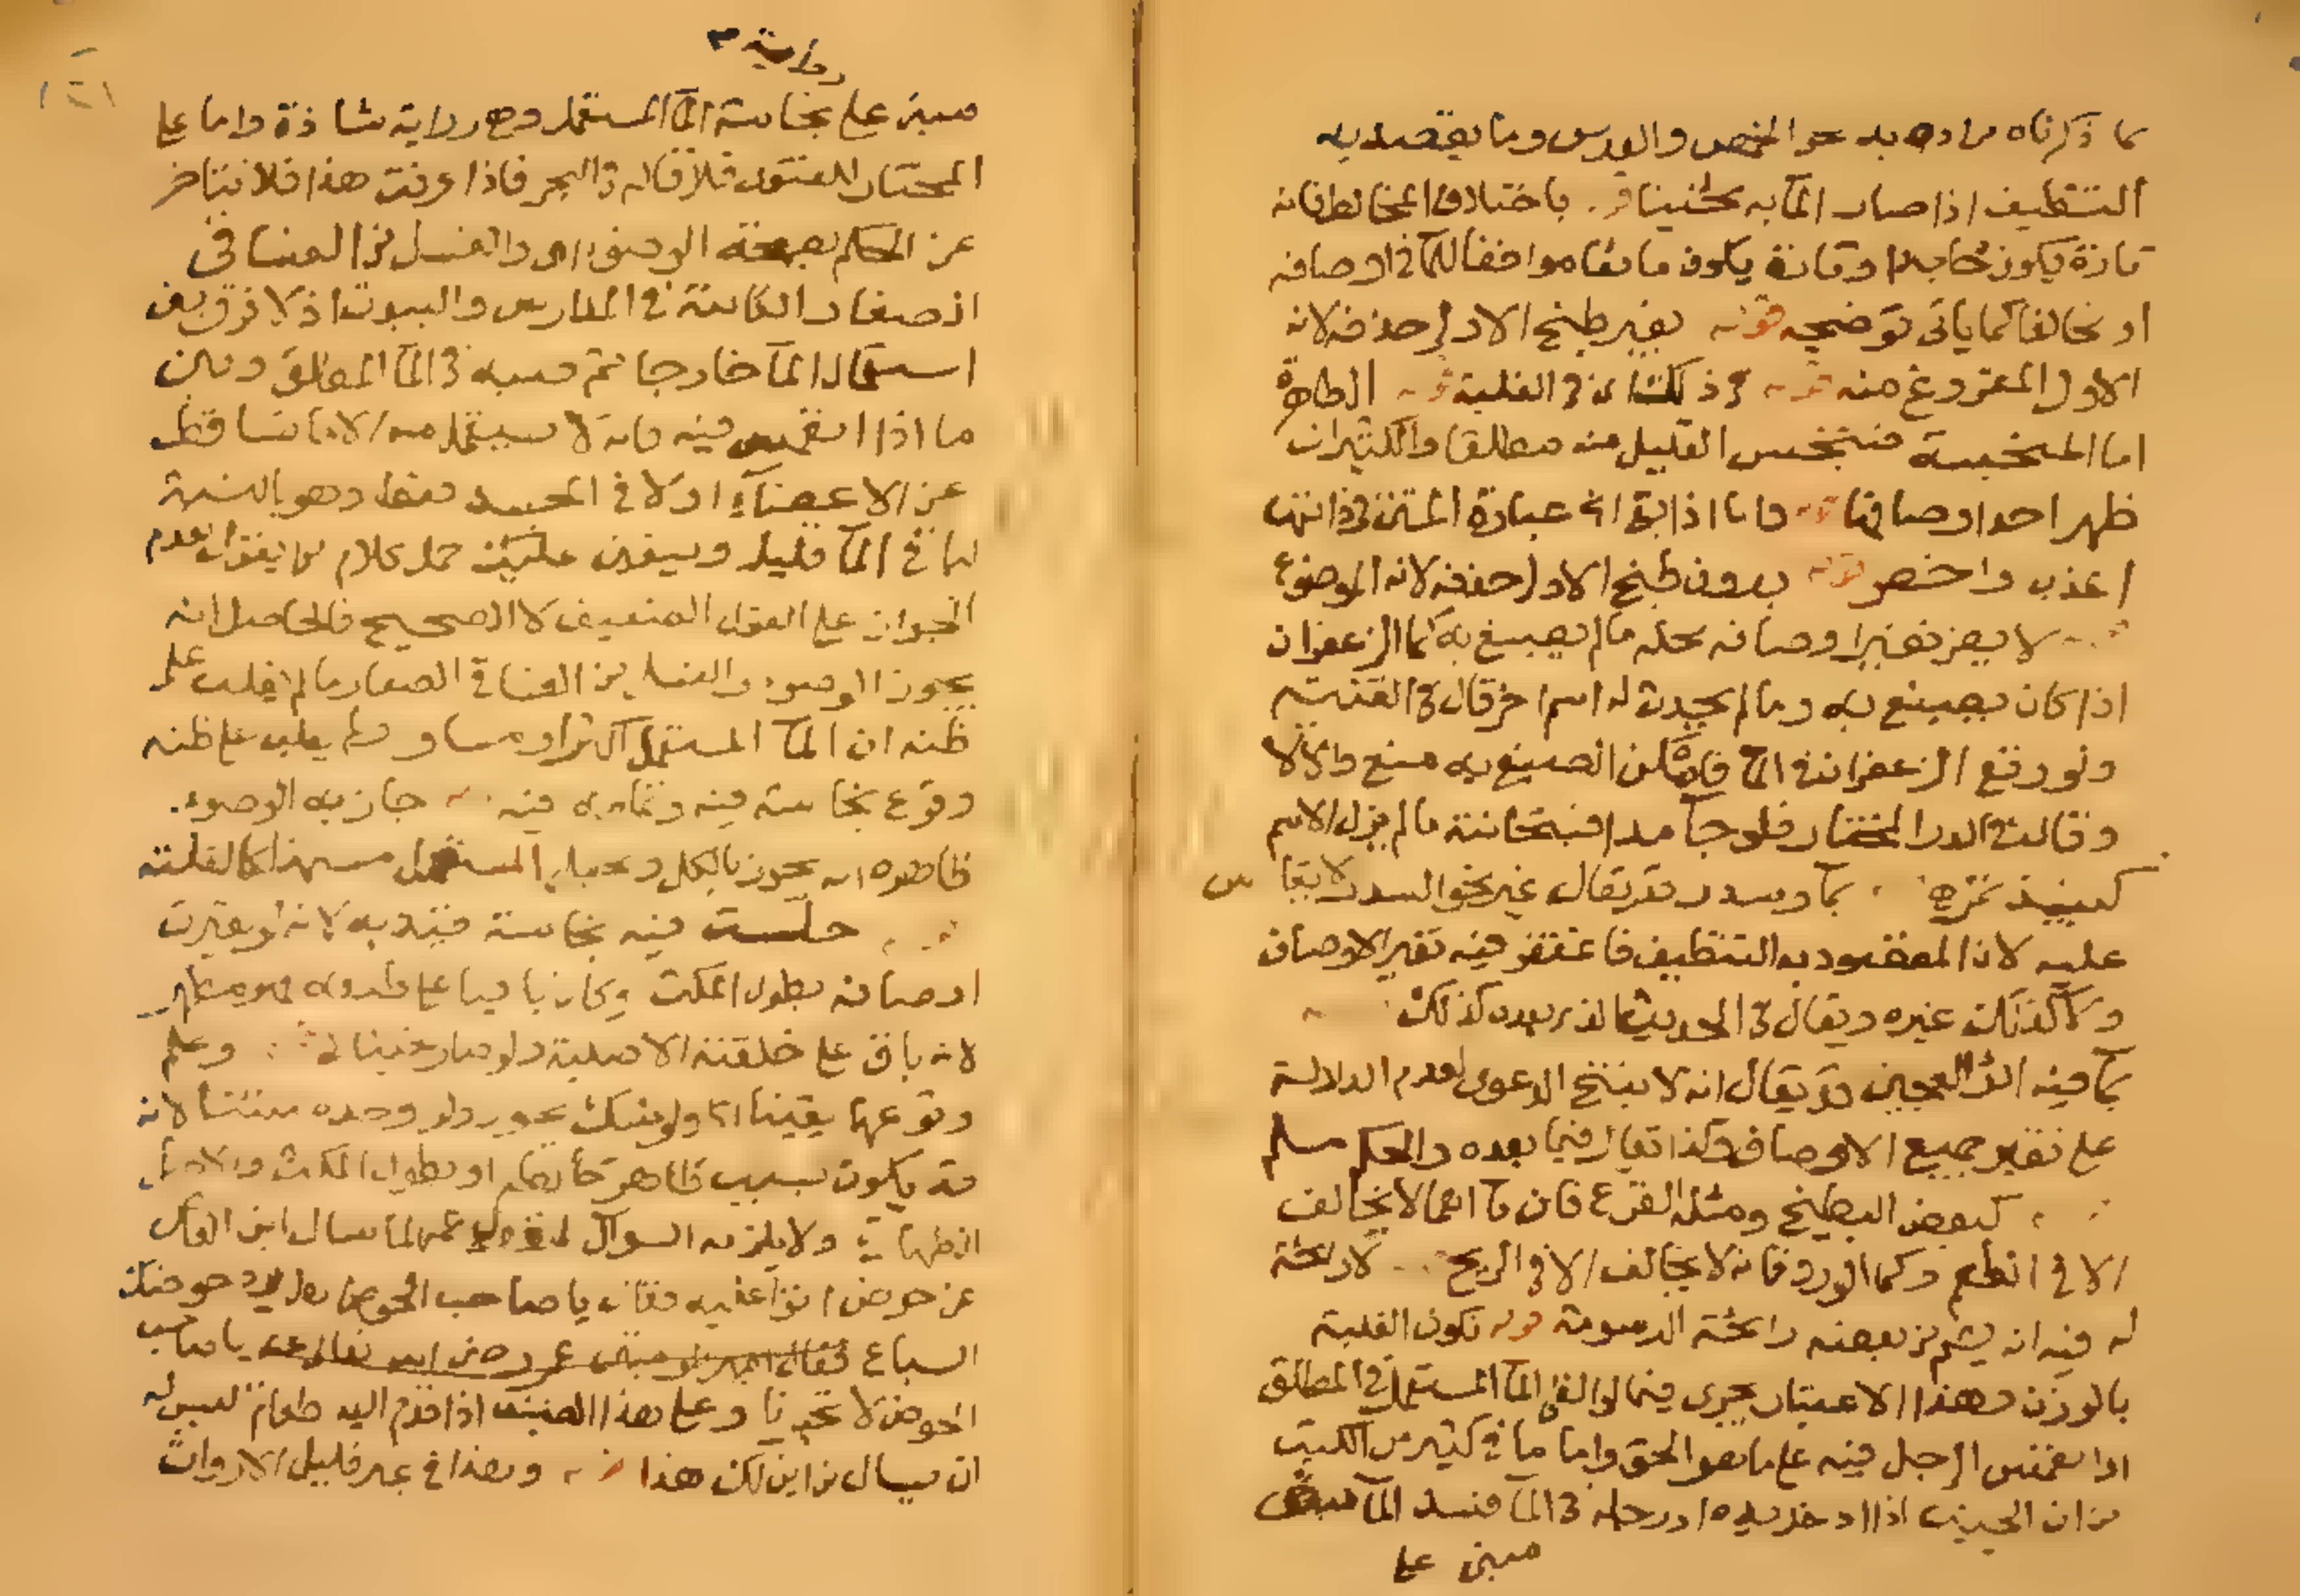 كما ذكرناه من نحو الحمص والعدس وما يقصد به
التنظيف اذا صار الماء به ثخينا باختلاف المخالط فانه
تارة يكون جامدا وتارة يكون مائعا موافقا للماء في اوصافه
او مخالفا كما ياتي توضيحه قوله بغير طبخ الاولى حذفه لانه
الاول المفروغ منه قوله في ذلك اي في الغلبة قوله الطاهرة
اما النجسة فتنجس القليل منه مطلقا والكثير ان
ظهر احد اوصافها قوله عبارة المتن في ذاتها
اعذب واخصر قوله بدون طبخ الاولى حذفه لانه الموضوع
لا يضر تغير اوصافه محله ما لم يصبغ به كماء الزعفران
اذا كان يصبغ به وما لم يحدث له اسم اخر قال في القنية
ولو وقع الزعفران في الماء فان امكن الصبغ به منع والا لا
وقال في الدر المختار فلو جامدا فبثخانته ما لم يزل الاسم
كنبيذ تمر بماء وسدر قد يقال غير نحو السدر لا يقاس
عليه لان المقصود به التنظيف فاغتفر فيه تغير الاوصاف
ولا كذلك غيره ويقال في الحديث الذي بعده كذلك
بماء فيه اثر العجين قد يقال انه لا ينتج الدعوى لعدم الدلالة
على تغير جميع الاوصاف وكذا تقال فيما بعده والحكم مسلم
كبعض البطيخ ومثله القرع فان ماءهما لا يخالف
الا في الطعم وكماء الورد فانه لا يخالف الا في الريح لا رائحة
له فيه انه يشم من بعضه رائحة الدسومة قوله تكون الغلبة
بالوزن وهذا الاعتبار يجري فيما لو القي الماء المستعمل في المطلق
او انغمس الرجل فيه على ما هو الحق واما ما في كثير من الكتب
من ان الجنب اذا ادخل يده او رجله في الماء فسد الماء
مبني على
مبني على نجاسة الماء المستعمل وهي رواية شاذة واما على
المختار للفتوى فلا قاله في البحر فاذا عرفت هذا فلا تتاخر
عن الحكم بصحة الوضوء والغسل من الفساقي
الصغار الكائنة في المدارس والبيوت اذ لا فرق بين
استعمال الماء خارجا ثم صبه في الماء المطلق وبين
ما اذا انغمس فيه فانه لا يستعمل منه الا ما تساقط
عن الاعضاء او لاقى الجسد فقط وهو بالنسبة
لباقي الماء قليل ويتعين عليك حمل كلام من يقول بعدم
الجواز على القول الضعيف لا الصحيح فالحاصل انه
يجوز الوضوء والغسل من الفساقي الصغار ما لم يغلب على
ظنه ان الماء المستعمل اكثر او مساو ولم يغلب على ظنه
وقوع نجاسة فيه وتمامه فيه جاز به الوضوء
ظاهره انه يجوز بالكل ويجعل المستعمل مستهلكا لقلته
فيه نجاسة قيد به لانه لو تغيرت
اوصافه بطول المكث وكان باقيا على طهوريته
لانه باق على خلقته الاصلية ولو صار ثخينا وعلم
وقوعها يقينا اما لو شك يجوز ولو وحده منتنا لانه
قد يكون بسبب طاهر او بطول المكث والاصل
الطهارة ولا يلزمه السؤال لقول عمر لما سال ابن العاص
عن حوض اتوا عليه فقال يا صاحب الحوض هل ترد حوضك
السباع يا صاحب
الحوض لا تخبرنا وعلى هذا الضيف اذا قدم اليه طعام ليس له
ان يسال من اين لك هذا وهذا في غير قليل الارواث